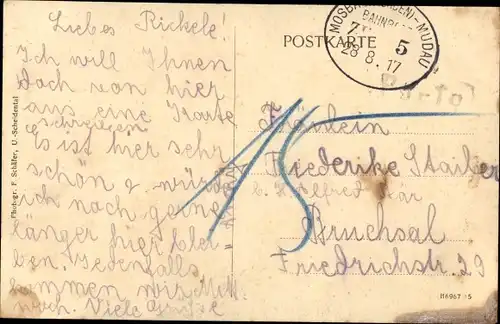 Liebes Rickele!
Ich will Ihnen
doch von hier
aus eine Karte
schreiben
Es ist hier sehr
schön u. würde
ich noch gerne
länger hier blei
ben. Jedenfalls
kommen wir Mitt
woch. Viele Grüße
Photogr. F. Schäfer, U.-Scheidental
POSTKARTE
MOSBACH (BADEN)-MUDAU
BAHNPOST
5
28 8.17
Porto
15
Fräulein
Friederike Staiber
Bruchsal
Friedrichstr. 29